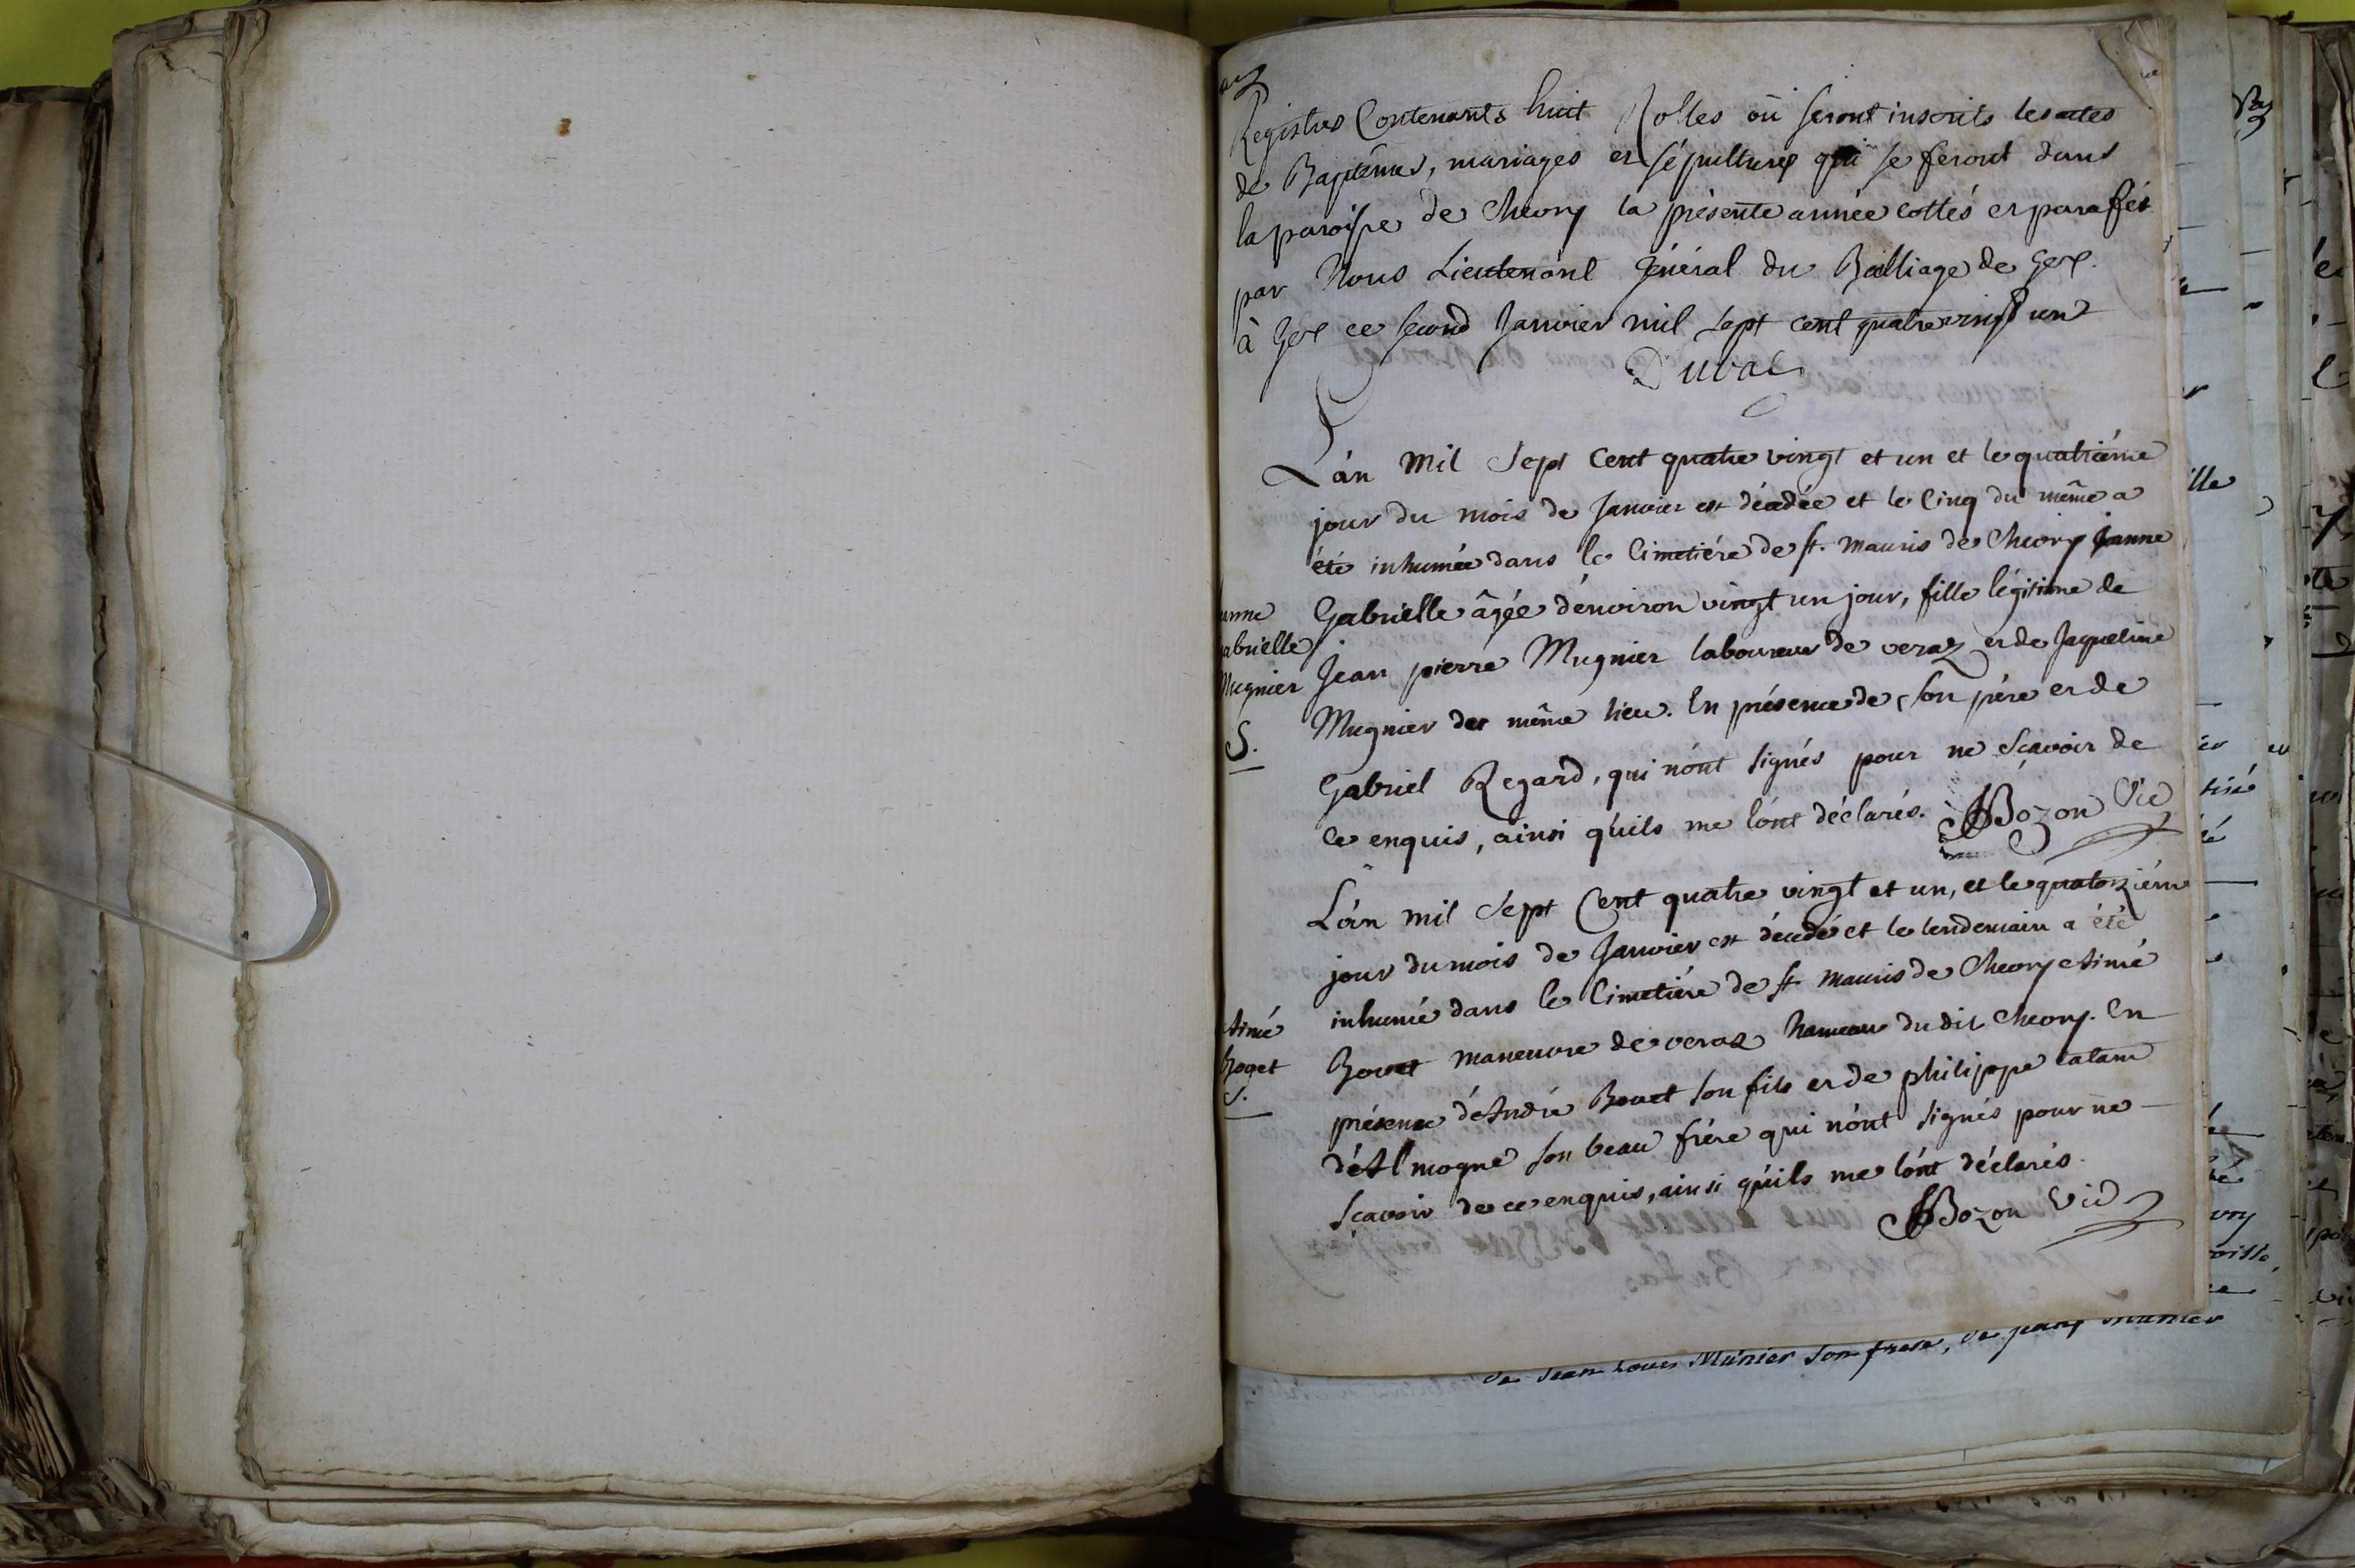 Registres Contenants huit Rolles où seront inscrits les actes
de Baptêmes, mariages et sépultures qui se feront dans
la paroisse de Chevry la présente année cottés et paraffés
par Nous Lieutenant Général du Balliage de Gex.
à Gex ce second Janvier mil sept cent quatre vingt un
Duval
L'án Mil Sept Cent quatre vingt et un et le quatriéme
jour du mois de Janvier est décédée et le Cinq du même a
été inhumée dans le Cimetiére de st. Mauris de Chevry Janne
Gabrielle âgée d'environ vingt un jour, fille légitime de
Jean pierre Mugnier laboureur de veraz et de Jaqueline
Mugnier du même lieu. En présence de son pére et de
Gabriel Regard, qui n'ónt signés pour ne Sçavoir de
ce enquis, ainsi qúils me l'ónt déclarés. JBozon Vic
anne
abrielle
Mugnier
S.
L'án mil Sept Cent quatre vingt et un, et le quatorziém
jour du mois de Janvier est décédé et le lendemain a été
inhumé dans le Cimetiére de st Mauris de Chevry Aimé
Bovet maneuvre de veraz hameau du dit Chevry. En
présence d'André Bovet son fils et de philippe catam
d'Allmogne son beau frére qui n'ónt signés pour ne
Scavoir de ce enquis, ainsi qúils me l'ónt déclarés.
JBozon Vic
Aimé
Boget
S.
de Jean Louis Munier son frere, de